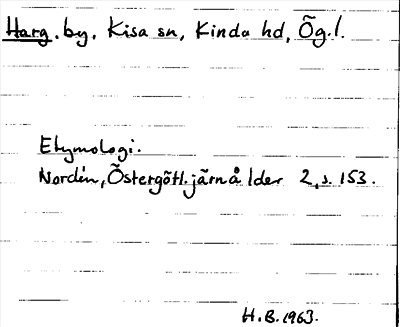 Harg. by. Kisa sn, Kinda hd, Ög.l.
Etymologi.
Nordén, Östergötl. järnålder 2, s. 153.
H.B. 1963.